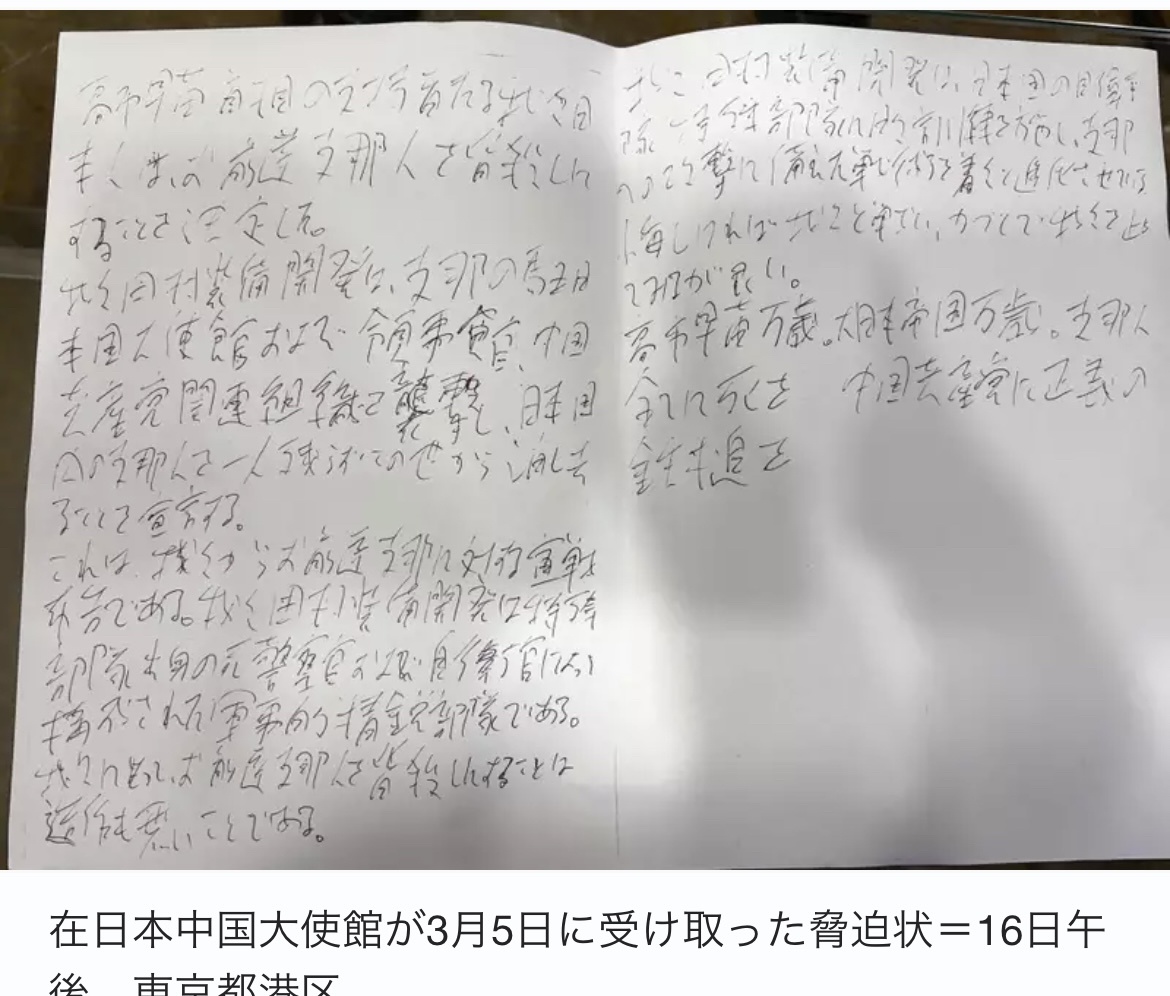 高市早苗首相の支持者たる我々田
村くは、お前達支那人を皆殺しに
することを決定した。
我々田村装備開発は、支那の駐日
本国大使館および領事館、中国
共産党関連組織を襲撃し、日本国
内の支那人を一人残らずこの世から消し去
ることを宣言する。
これは、我々からお前達支那に対する宣戦
布告である。我々田村装備開発は特殊
部隊出身の元警察官および自衛官によって
構成された軍事的精鋭部隊である。
我々に出ればお前達支那人を皆殺しにすることは
造作も無いことである。
我々田村装備開発は、日本国の自衛
隊 特殊部隊にも訓練を施し、支那
への攻撃に備えた戦術を着々と進化させている
悔しければ我々と戦い、かかって我々を止め
てみるが良い。
高市早苗万歳。大日本帝国万歳。支那人
全てに死を 中国共産党に正義の
鉄槌を
在日本中国大使館が3月5日に受け取った脅迫状＝16日午
後、東京都港区